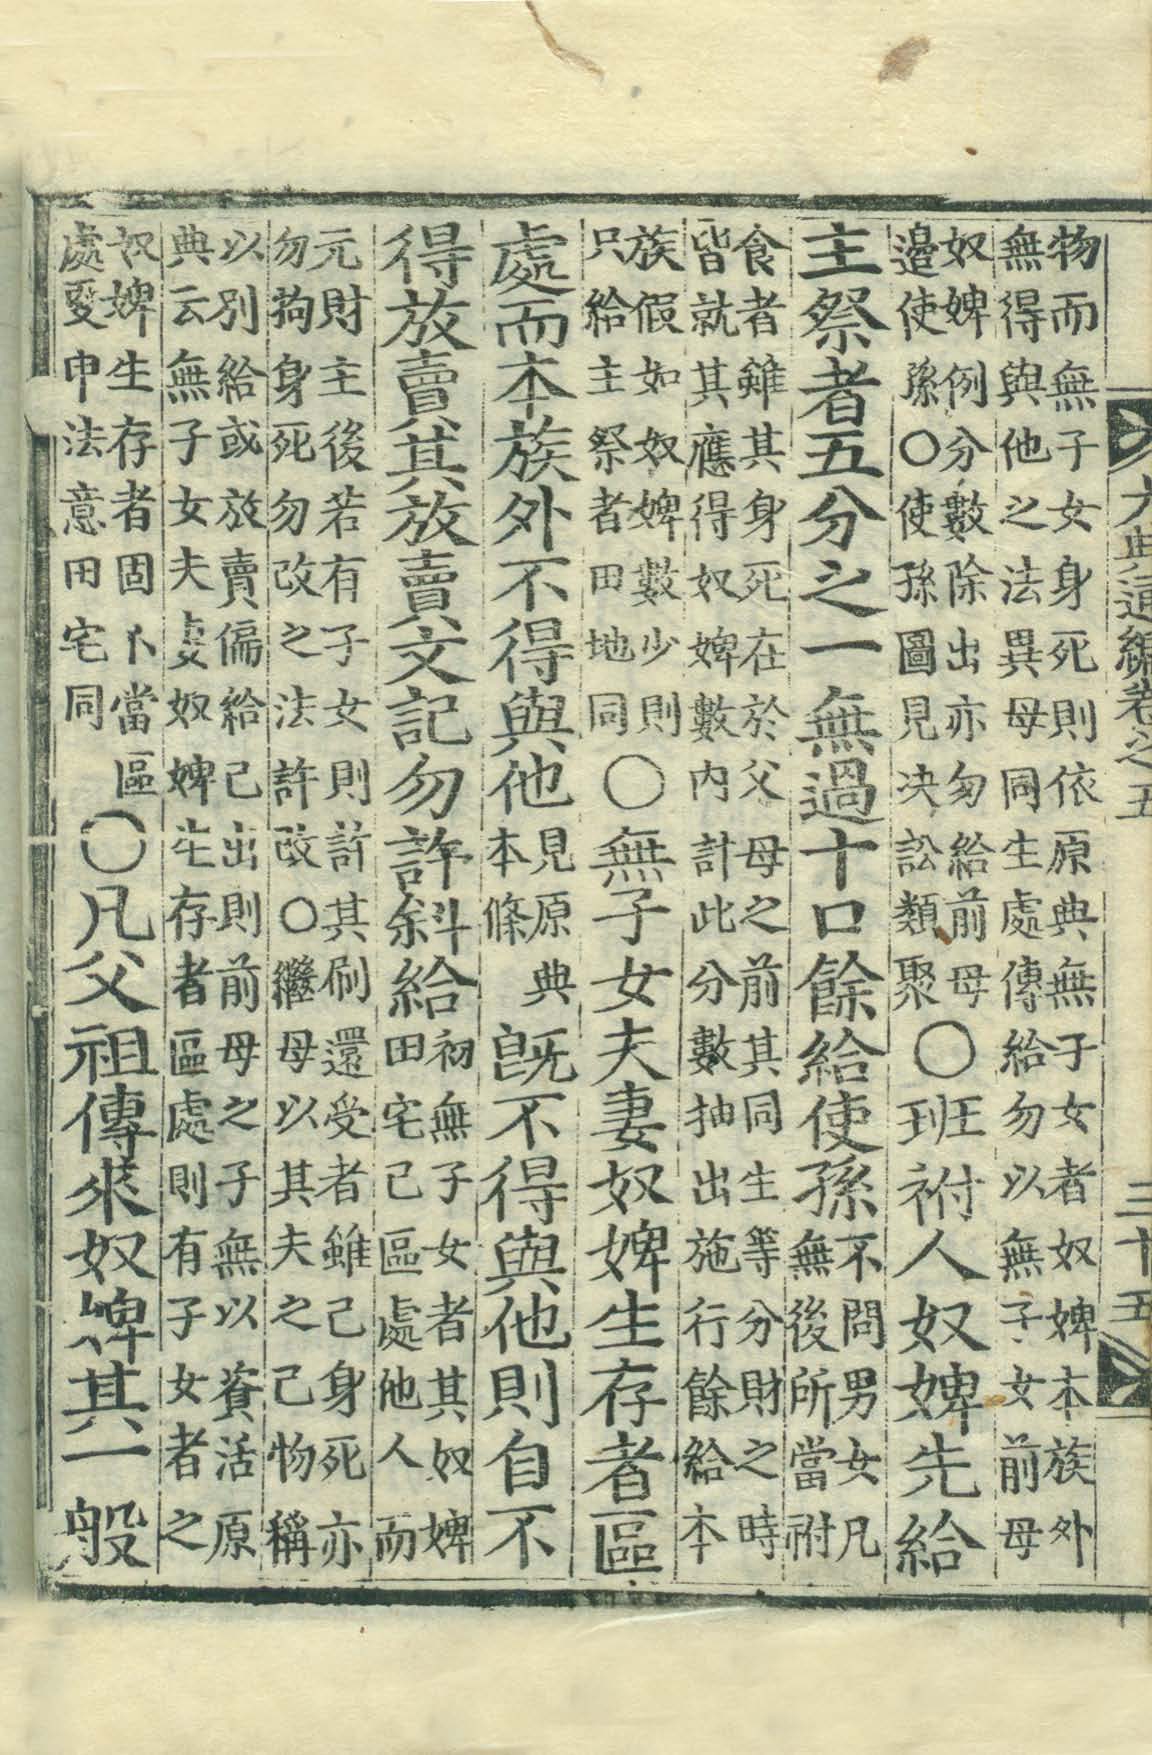 大典通編卷之五 三十五
物而無子女身死則依原典無子女者奴婢本族外
無得與他之法異母同生處傳給勿以無子女前母
奴婢例分數除出亦勿給前母
邉使孫○使孫圖見决訟類聚
○班祔人奴婢先給
主祭者五分之一無過十口餘給使孫
不問男女凡
無後所當祔
食者雖其身死在於父母之前其同生等分財之時
皆就其應得奴婢數內計此分數抽出施行餘給本
族假如奴婢數少則
只給主祭者田地同
○無子女夫妻奴婢生存者區
處而本族外不得與他
見原典
本條
旣不得與他則自不
得放賣其放賣文記勿許斜給
初無子女者其奴婢
田宅己區處他人而
元財主後若有子女則許其刷還受者雖己身死亦
勿拘身死勿改之法許改○繼母以其夫之己物稱
以別給或放賣偏給己出則前母之子無以資活原
典云無子女夫妻奴婢生存者區處則有子女者之
奴婢生存者固不當區
處更申法意田宅同
○凡父祖傳來奴婢其一般